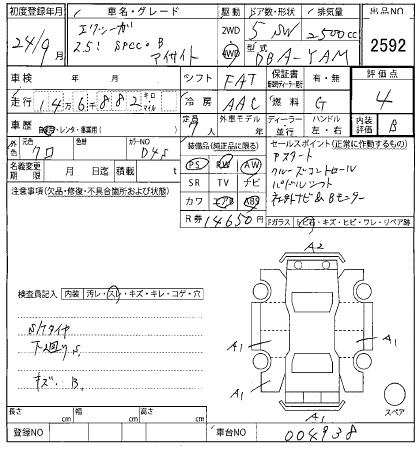 初度登録年月 車名・グレード 駆動 ドア数・形状 排気量 出品NO
24/9月 エクシーガ 2WD 4WD 5 SW 2500cc 2592
2.5i spec. B 型式
アイサイト DBA-YAM
車検 年 月 シフト FAT 保証書 有・無 評価点
走行 14万6千882 キロ マイル 冷房 AAC 燃料 G 4
車歴 自家・レンタ・事業用( ) 定員 7人 外車モデル 年 ディーラー 並行 ハンドル 左・右 内装評価 B
外色 元色 クロ 色替 カラーNO D4S
装備品(純正品に限る) セールスポイント(正常に作動するもの)
名義変更期限 月 日迄 積載 t
PS PW AW Pスタート
注意事項(欠品・修復・不具合箇所および状態) SR TV ナビ クルーズコントロール
カワ エアB ABS パドルシフト
R券 14650円
Fガラス トビ石・キズ・ヒビ・ワレ・リペア跡
A2
検査員記入 内装 汚レ・スレ・キズ・キレ・コゲ・穴
S/Tタイヤ
下廻りS
キズ. B.
A1 A1
A1
A1
スペア
長さ cm 幅 cm 高さ cm
登録NO 車台NO 004938